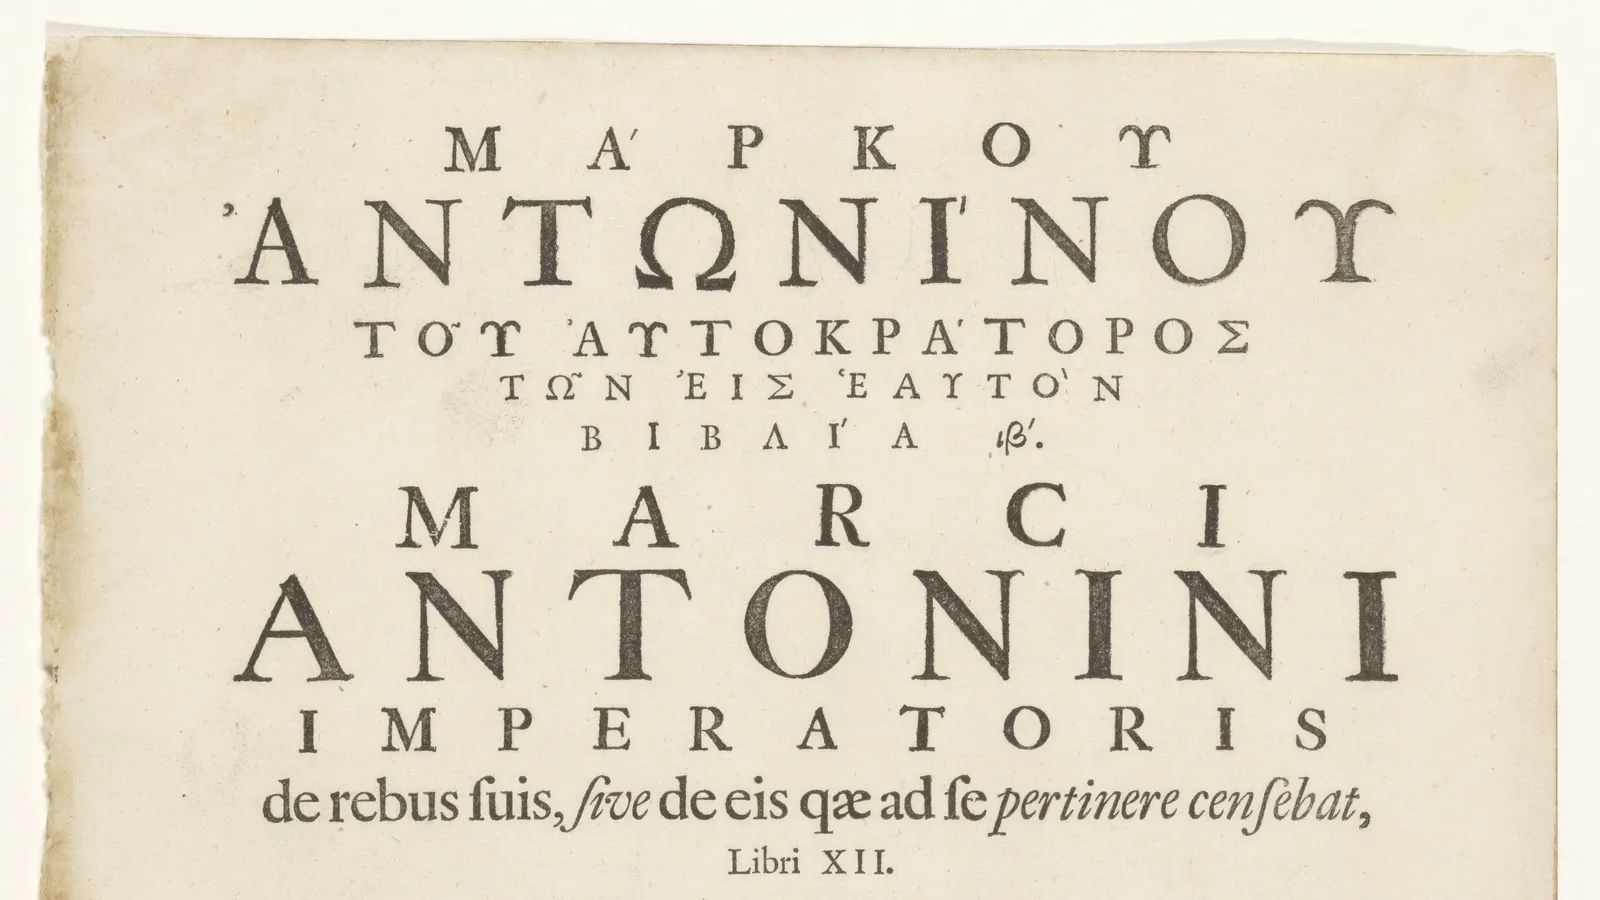 ΜΆΡΚΟΥ
ἈΝΤΩΝΊΝΟΥ
ΤΟῦΥ ἈΥΤΟΚΡΆΤΟΡΟΣ
ΤΩ͂Ν ἘΙΣ ἙΑΥΤῸΝ
ΒΙΒΛΊΑ ιβ´.
MARCI
ANTONINI
IMPERATORIS
de rebus ſuis, ſive de eis qæ ad ſe pertinere cenſebat,
Libri XII.